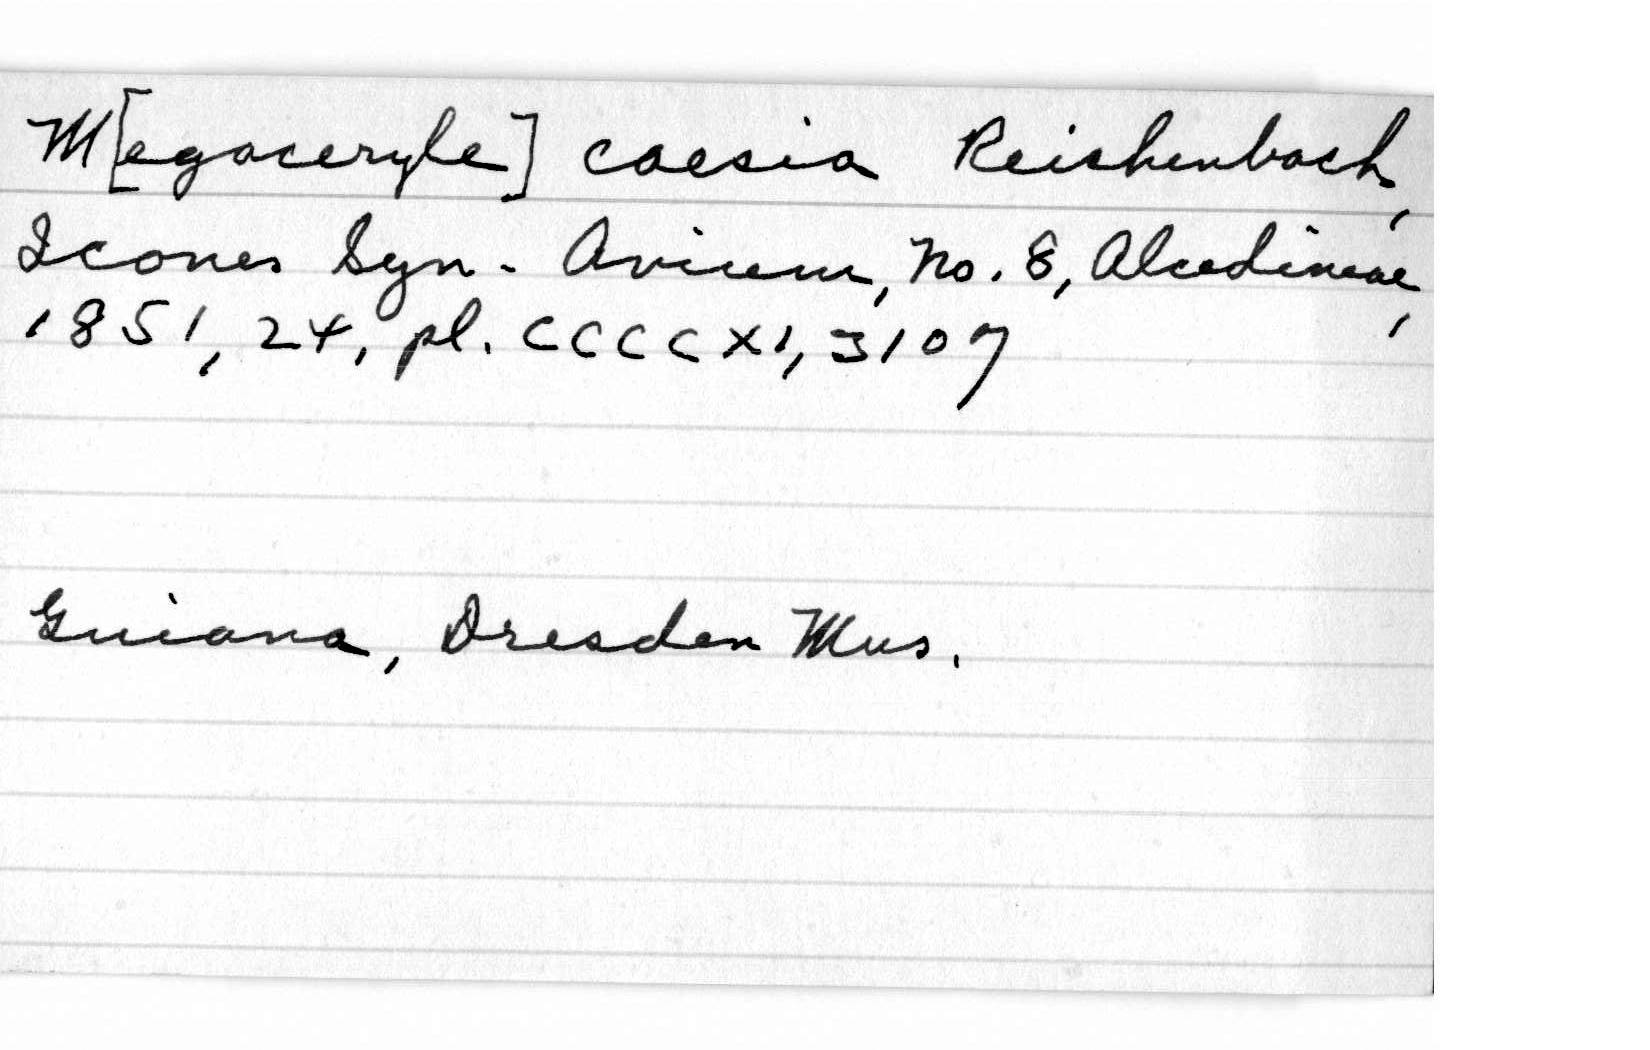 M[egaceryle] caesia Reichenbach,
Icones Syn. Avium, No. 8, Alcedineae,
1851, 24, pl. CCCCXI, 3107
Guiana, Dresden Mus.